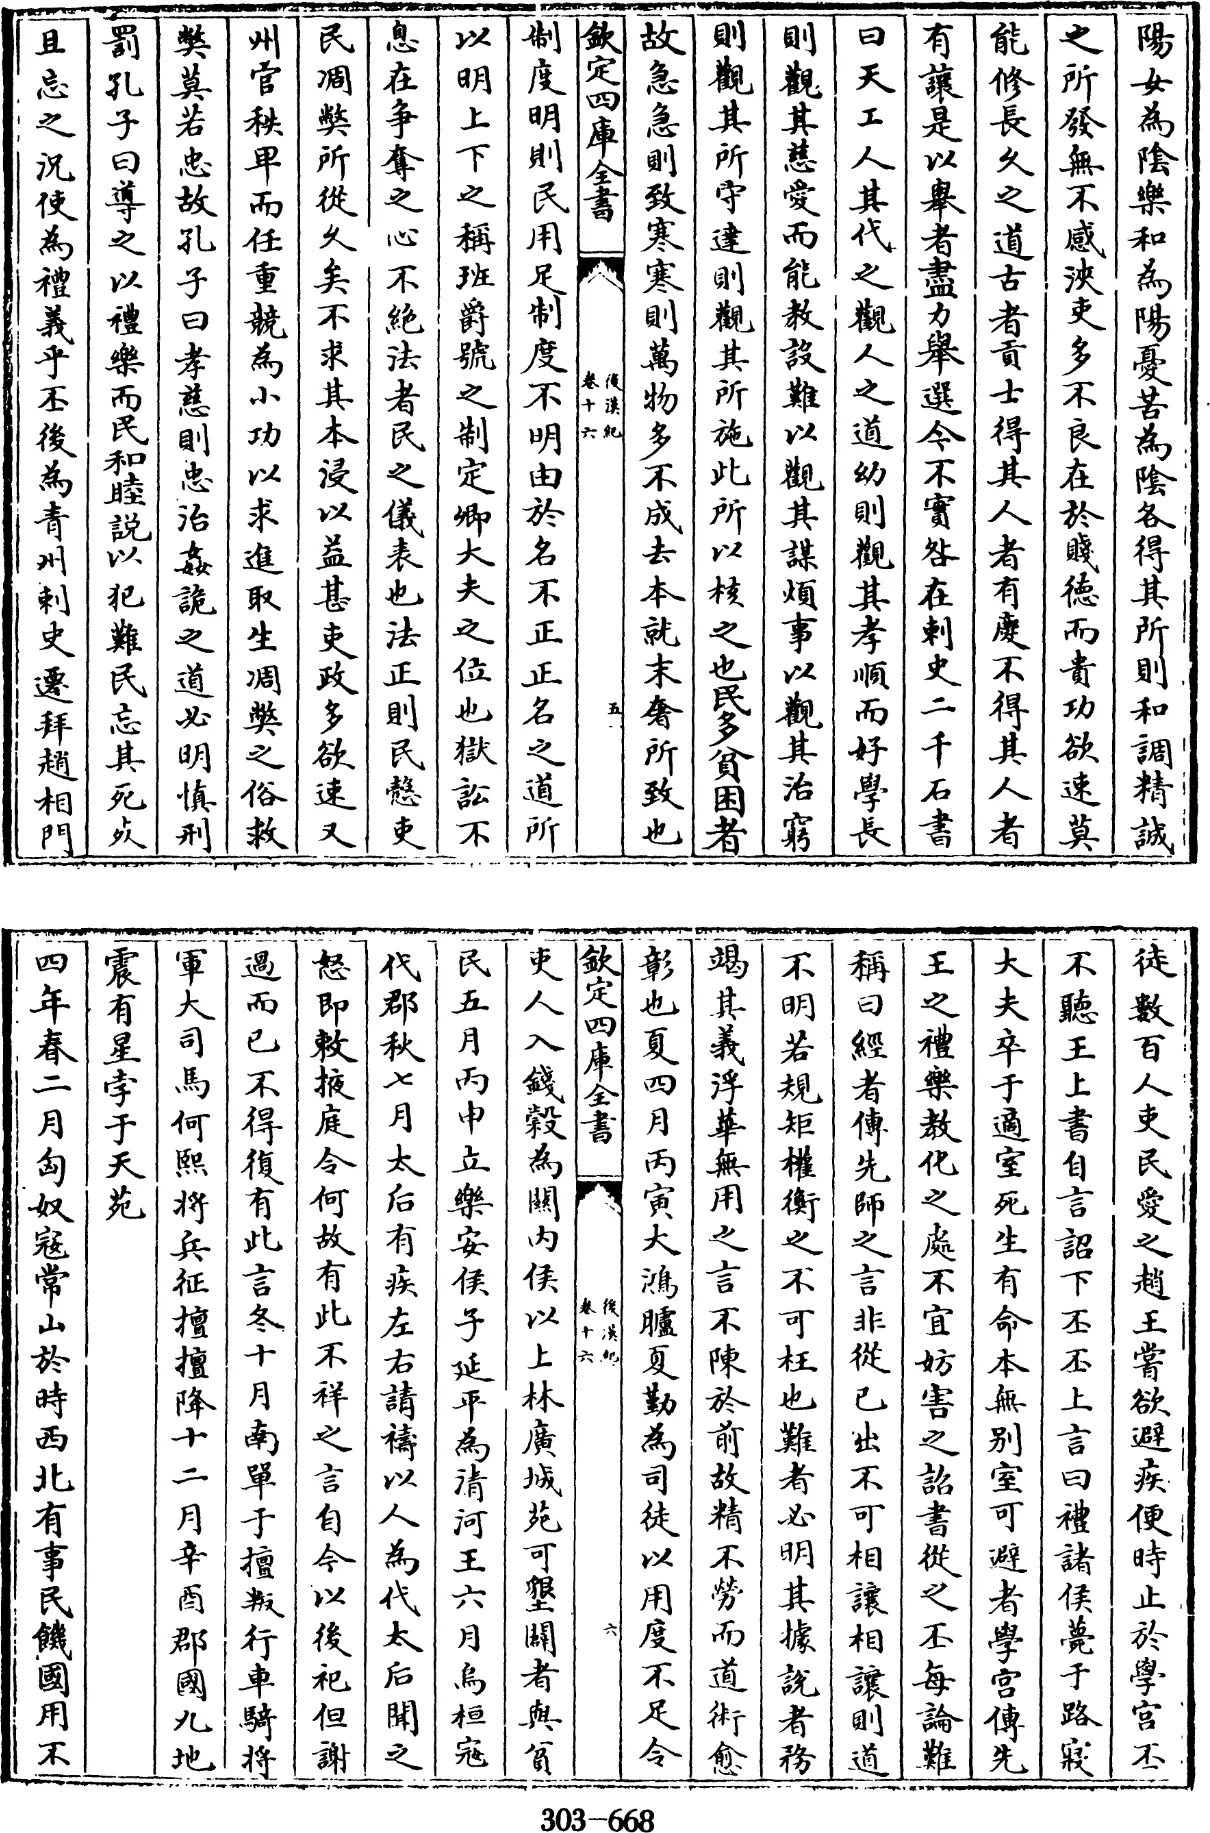 陽女為陰樂和為陽憂苦為陰各得其所則和調精誠
之所發無不感浹吏多不良在於賤德而貴功欲速莫
能修長久之道古者貢士得其人者有慶不得其人者
有讓是以舉者盡力舉選今不實咎在刺史二千石書
曰天工人其代之觀人之道幼則觀其孝順而好學長
則觀其慈愛而能教設難以觀其謀煩事以觀其治窮
則觀其所守達則觀其所施此所以核之也民多貧困者
故急急則致寒寒則萬物多不成去本就末奢所致也
欽定四庫全書
後漢紀
卷十六
五
制度明則民用足制度不明由於名不正正名之道所
以明上下之稱班爵號之制定卿大夫之位也獄訟不
息在争奪之心不絶法者民之儀表也法正則民慤吏
民凋弊所從久矣不求其本浸以益甚吏政多欲速又
州官秩卑而任重競為小功以求進取生凋弊之俗救
弊莫若忠故孔子曰孝慈則忠治姦詭之道必明慎刑
罰孔子曰導之以禮樂而民和睦説以犯難民忘其死死
且忘之況使為禮義乎丕後為青州刺史遷拜趙相門
徒數百人吏民愛之趙王嘗欲避疾便時止於學宫丕
不聽王上書自言詔下丕丕上言曰禮諸侯薨于路寢
大夫卒于適室死生有命本無别室可避者學宫傳先
王之禮樂教化之處不宜妨害之詔書從之丕每論難
稱曰經者傳先師之言非從已出不可相讓相讓則道
不明若規矩權衡之不可枉也難者必明其據說者務
竭其義浮華無用之言不陳於前故精不勞而道術愈
彰也夏四月丙寅大鴻臚夏勤為司徒以用度不足令
欽定四庫全書
後漢紀
卷十六
六
吏人入錢穀為關内侯以上林廣城苑可墾闢者與貧
民五月丙申立樂安侯子延平為清河王六月烏桓寇
代郡秋七月太后有疾左右請禱以人為代太后聞之
怒即敕掖庭令何故有此不祥之言自今以後祀但謝
過而已不得復有此言冬十月南單于擅叛行車騎將
軍大司馬何熙將兵征擅擅降十二月辛酉郡國九地
震有星孛于天苑
四年春二月匈奴寇常山於時西北有事民饑國用不
303-668